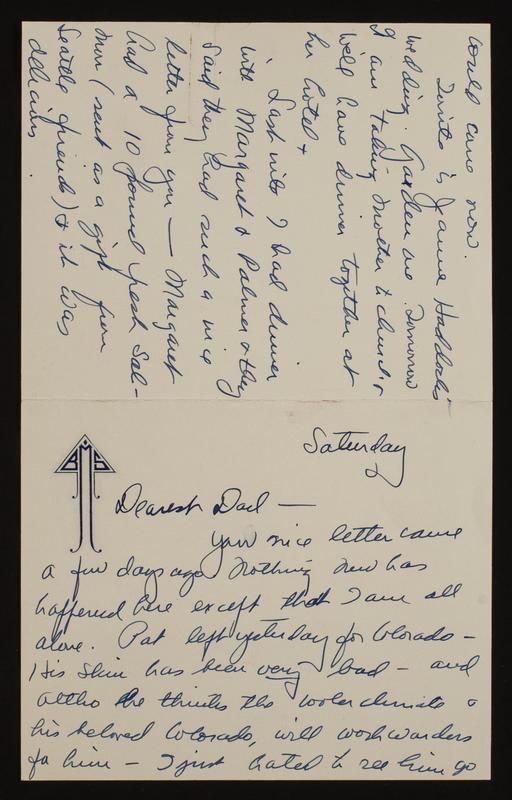 Saturday
BMS
Dearest Dad —
Your nice letter came
a few days ago. Nothing new has
happened here except that I am all
alone. Pat left yesterday for Colorado –
His skin has been very bad – and
altho he thinks the cooler climate &
his beloved Colorado, will work wonders
for him – I just hated to see him go
could care now.
Tonite is Jeanne Haddock's
wedding. Garden one. Tomorrow
I am taking Mother to church &
we'll have dinner together at
her hotel.
Last nite I had dinner
with Margaret & Palmer & they
said they had such a nice
letter from you — Margaret
had a 10 pound fresh Sal-
mon (sent as a gift from
Seattle friends) & it was
delicious.